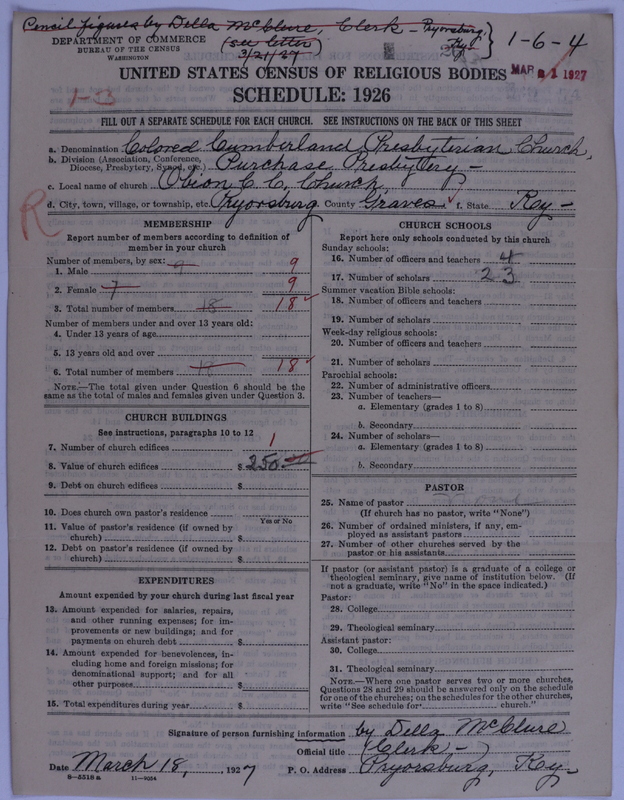 Pencil figures by Della McClure, Clerk - Pryorsburg, Ky.
(see letter) 3/21/27
1-6-4
DEPARTMENT OF COMMERCE
BUREAU OF THE CENSUS
WASHINGTON
MAR 21 1927
UNITED STATES CENSUS OF RELIGIOUS BODIES
1-3
SCHEDULE: 1926
FILL OUT A SEPARATE SCHEDULE FOR EACH CHURCH. SEE INSTRUCTIONS ON THE BACK OF THIS SHEET
a. Denomination Colored Cumberland Presbyterian Church,
b. Division (Association, Conference, Diocese, Presbytery, Synod, etc.) Purchase Presbytery -
c. Local name of church Obion C. C. Church,
d. City, town, village, or township, etc. Pryorsburg County Graves f. State Key -
R
MEMBERSHIP
Report number of members according to definition of
member in your church
Number of members, by sex:
1. Male 9 9
2. Female 7 9
3. Total number of members 18 18
Number of members under and over 13 years old:
4. Under 13 years of age
5. 13 years old and over
6. Total number of members 18
NOTE.—The total given under Question 6 should be the
same as the total of males and females given under Question 3.
CHURCH BUILDINGS
See instructions, paragraphs 10 to 12
7. Number of church edifices 1
8. Value of church edifices $ 250
9. Debt on church edifices $
10. Does church own pastor's residence
Yes or No
11. Value of pastor's residence (if owned by
church) $
12. Debt on pastor's residence (if owned by
church) $
EXPENDITURES
Amount expended by your church during last fiscal year
13. Amount expended for salaries, repairs,
and other running expenses; for im-
provements or new buildings; and for
payments on church debt $
14. Amount expended for benevolences, in-
cluding home and foreign missions; for
denominational support; and for all
other purposes $
15. Total expenditures during year $
CHURCH SCHOOLS
Report here only schools conducted by this church
Sunday schools:
16. Number of officers and teachers 4
17. Number of scholars 23
Summer vacation Bible schools:
18. Number of officers and teachers
19. Number of scholars
Week-day religious schools:
20. Number of officers and teachers
21. Number of scholars
Parochial schools:
22. Number of administrative officers
23. Number of teachers—
a. Elementary (grades 1 to 8)
b. Secondary
24. Number of scholars—
a. Elementary (grades 1 to 8)
b. Secondary
PASTOR
25. Name of pastor None
(If church has no pastor, write "None")
26. Number of ordained ministers, if any, em-
ployed as assistant pastors
27. Number of other churches served by the
pastor or his assistants
If pastor (or assistant pastor) is a graduate of a college or
theological seminary, give name of institution below. (If
not a graduate, write "No" in the space indicated.)
Pastor:
28. College
29. Theological seminary
Assistant pastor:
30. College
31. Theological seminary
NOTE.—Where one pastor serves two or more churches,
Questions 28 and 29 should be answered only on the schedule
for one of the churches; on the schedules for the other churches,
write "See schedule for church."
Signature of person furnishing information by Della McClure
Official title (Clerk -)
Date March 18, 1927 P. O. Address Pryorsburg, Key-
8—5518 a 11—9054